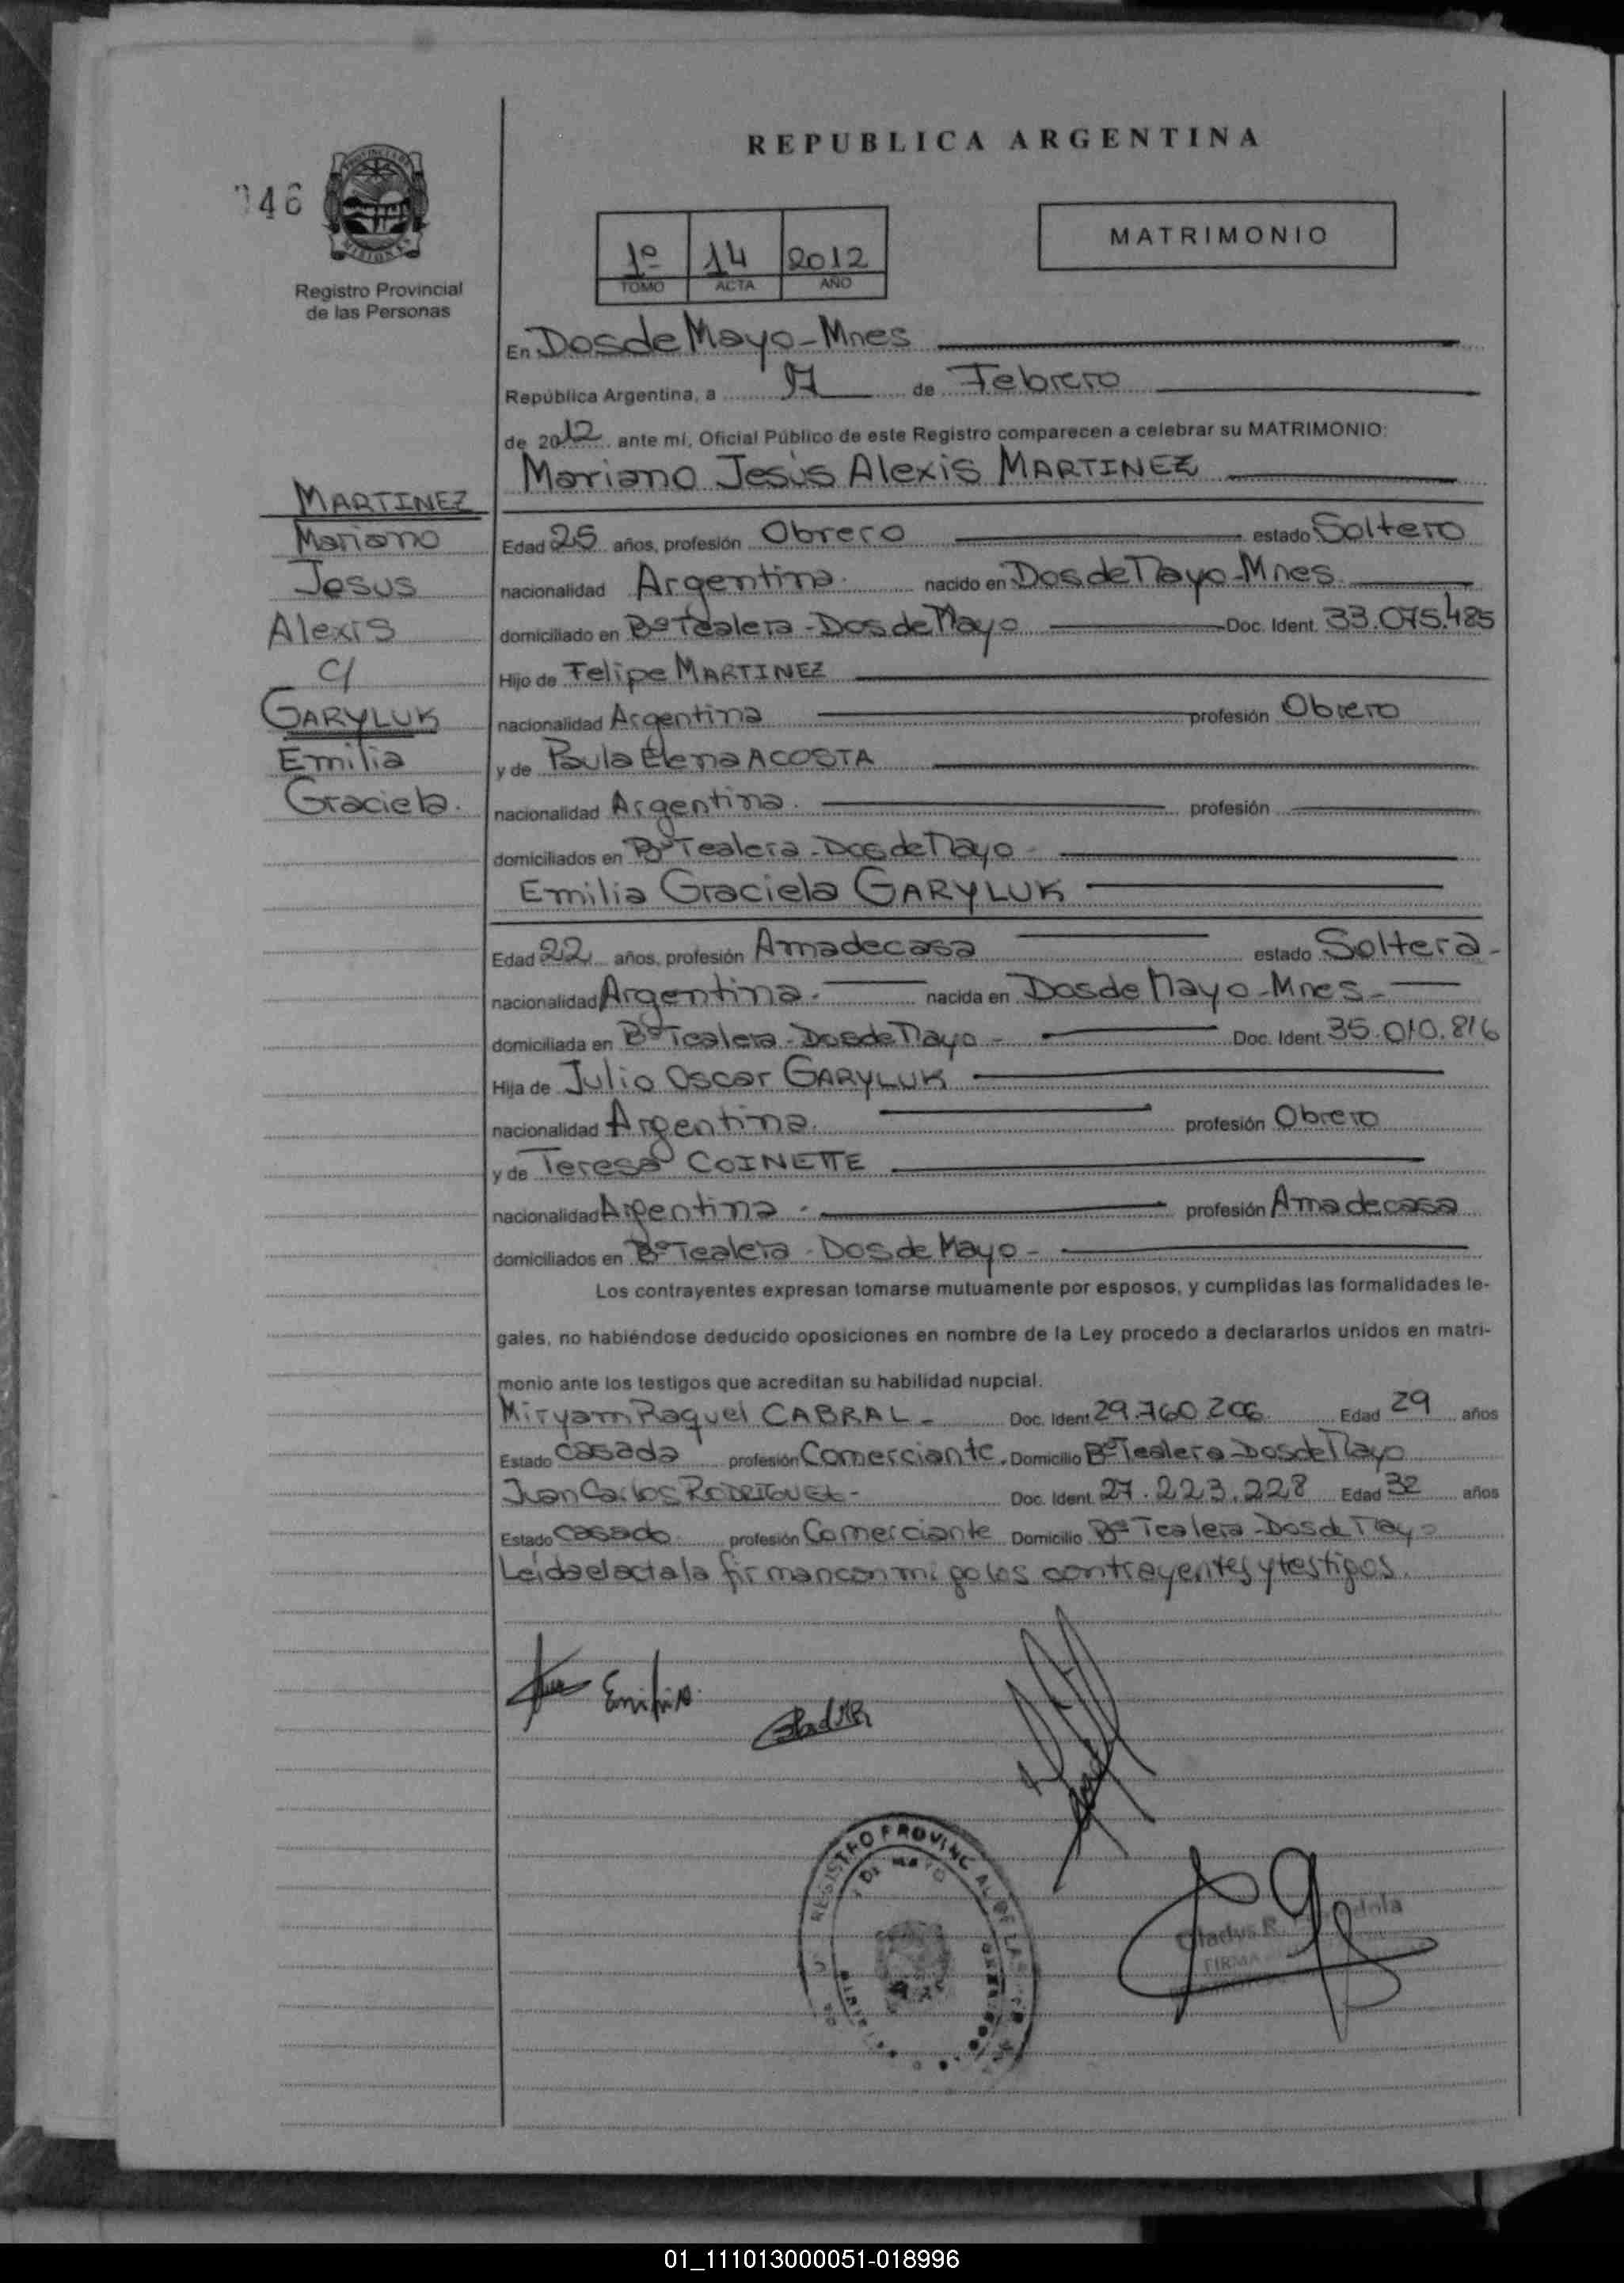 REPUBLICA ARGENTINA
46
Registro Provincial
de las Personas
1º 14 2012
TOMO ACTA AÑO
MATRIMONIO
En Dos de Mayo - Mnes
República Argentina, a de Febrero
de 2012 ante mí, Oficial Público de este Registro comparecen a celebrar su MATRIMONIO:
Mariano Jesús Alexis MARTINEZ
MARTINEZ
Mariano
Jesus
Alexis
c/
GARYLUK
Emilia
Graciela.
Edad 25 años, profesión Obrero estado Soltero
nacionalidad Argentina. nacido en Dos de Mayo - Mnes
domiciliado en Bº Tealera - Dos de Mayo Doc. Ident. 33.075.485
Hijo de Felipe MARTINEZ
nacionalidad Argentina profesión Obrero
y de Paula Elena ACOSTA
nacionalidad Argentina. profesión
domiciliados en Bº Tealera - Dos de Mayo -
Emilia Graciela GARYLUK
Edad 22 años, profesión Ama de casa estado Soltera -
nacionalidad Argentina. nacida en Dos de Mayo - Mnes -
domiciliada en Bº Tealera - Dos de Mayo - Doc. Ident. 35.010.816
Hija de Julio Oscar GARYLUK
nacionalidad Argentina. profesión Obrero
y de Teresa COINETTE
nacionalidad Argentina - profesión Ama de casa
domiciliados en Bº Tealera - Dos de Mayo -
Los contrayentes expresan tomarse mutuamente por esposos, y cumplidas las formalidades le-
gales, no habiéndose deducido oposiciones en nombre de la Ley procedo a declararlos unidos en matri-
monio ante los testigos que acreditan su habilidad nupcial.
Miryam Raquel CABRAL - Doc. Ident. 29.760.206 Edad 29 años
Estado casada profesión Comerciante. Domicilio Bº Tealera - Dos de Mayo
Juan Carlos RODRIGUEZ - Doc. Ident. 27.223.228 Edad 32 años
Estado casado profesión Comerciante Domicilio Bº Tealera - Dos de Mayo
Leida el acta la firman conmigo los contrayentes y testigos.
Emilia
REGISTRO PROVINCIAL DE LAS
DE MAYO
Gladys R.
FIRMA
01_111013000051-018996